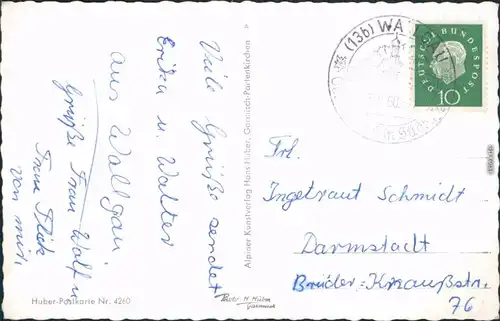 Viele Grüße sendet
Erika u. Walter
aus Wallgau
Grüße Frau Wolf u
Frau Flick
von mir.
Huber-Postkarte Nr. 4260
Alpiner Kunstverlag Hans Huber, Garmisch-Partenkirchen
(13b) WALLGAU
60
DEUTSCHE BUNDESPOST
10
Frl.
Ingetraut Schmidt
Darmstadt
Brüder-Knaußstr.
76